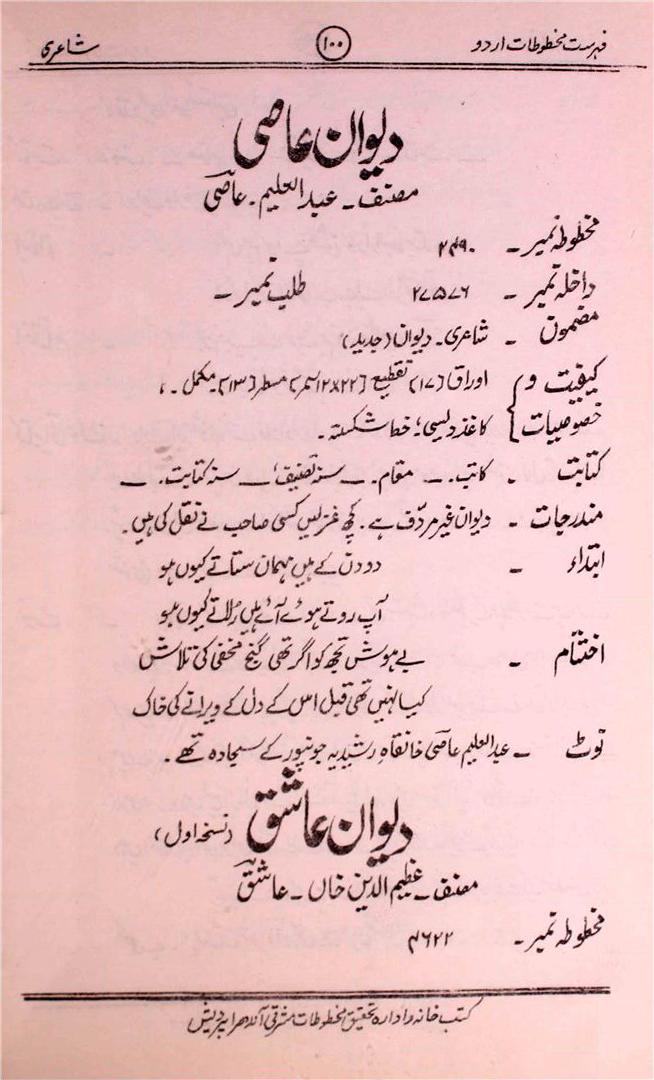 فہرست مخطوطات اردو ۱۰۰ شاعری
دیوان عاصی
مصنف ۔ عبدالعلیم ۔ عاصی
مخطوطہ نمبر ۔ ۲۴۹۰
داخلہ نمبر ۔ ۲۷۵۷۶ طلب نمبر ۔
مضمون ۔ شاعری ۔ دیوان (جدید)
کیفیت و اوراق [۱۷] تقطیع [۲۲×۱۲ سمر] مسطر [۱۳] مکمل ۔
خصوصیات کاغذ دیسی؛ خط شکستہ ۔
کتابت ۔ کاتب ۔ — مقام ۔ — سنہ تصنیف؛ — سنہ کتابت ۔ —
مندرجات ۔ دیوان غیر مردّف ہے ۔ کچھ غزلیں کسی صاحب نے نقل کی ہیں ۔
ابتداء ۔ دو دن کے ہیں مہمان ستاتے کیوں ہو
آپ روتے ہوے آے ہیں رُلاتے کیوں ہو
اختتام ۔ بے ہوش تجھ کو اگر تھی گنج مخفی کی تلاش
کیا نہیں تھی قبل اس کے دل کے ویرانے کی خاک
نوٹ ۔ عبدالعلیم عاصی خانقاہ رشیدیہ جونپور کے سجادہ تھے ۔
دیوان عاشق (نسخہ اول)
مصنف ۔ عظیم الدین خاں ۔ عاشق
مخطوطہ نمبر ۔ ۴۶۲۲
کتب خانہ و ادارہ تحقیق مخطوطات مشرقی آندھرا پردیش